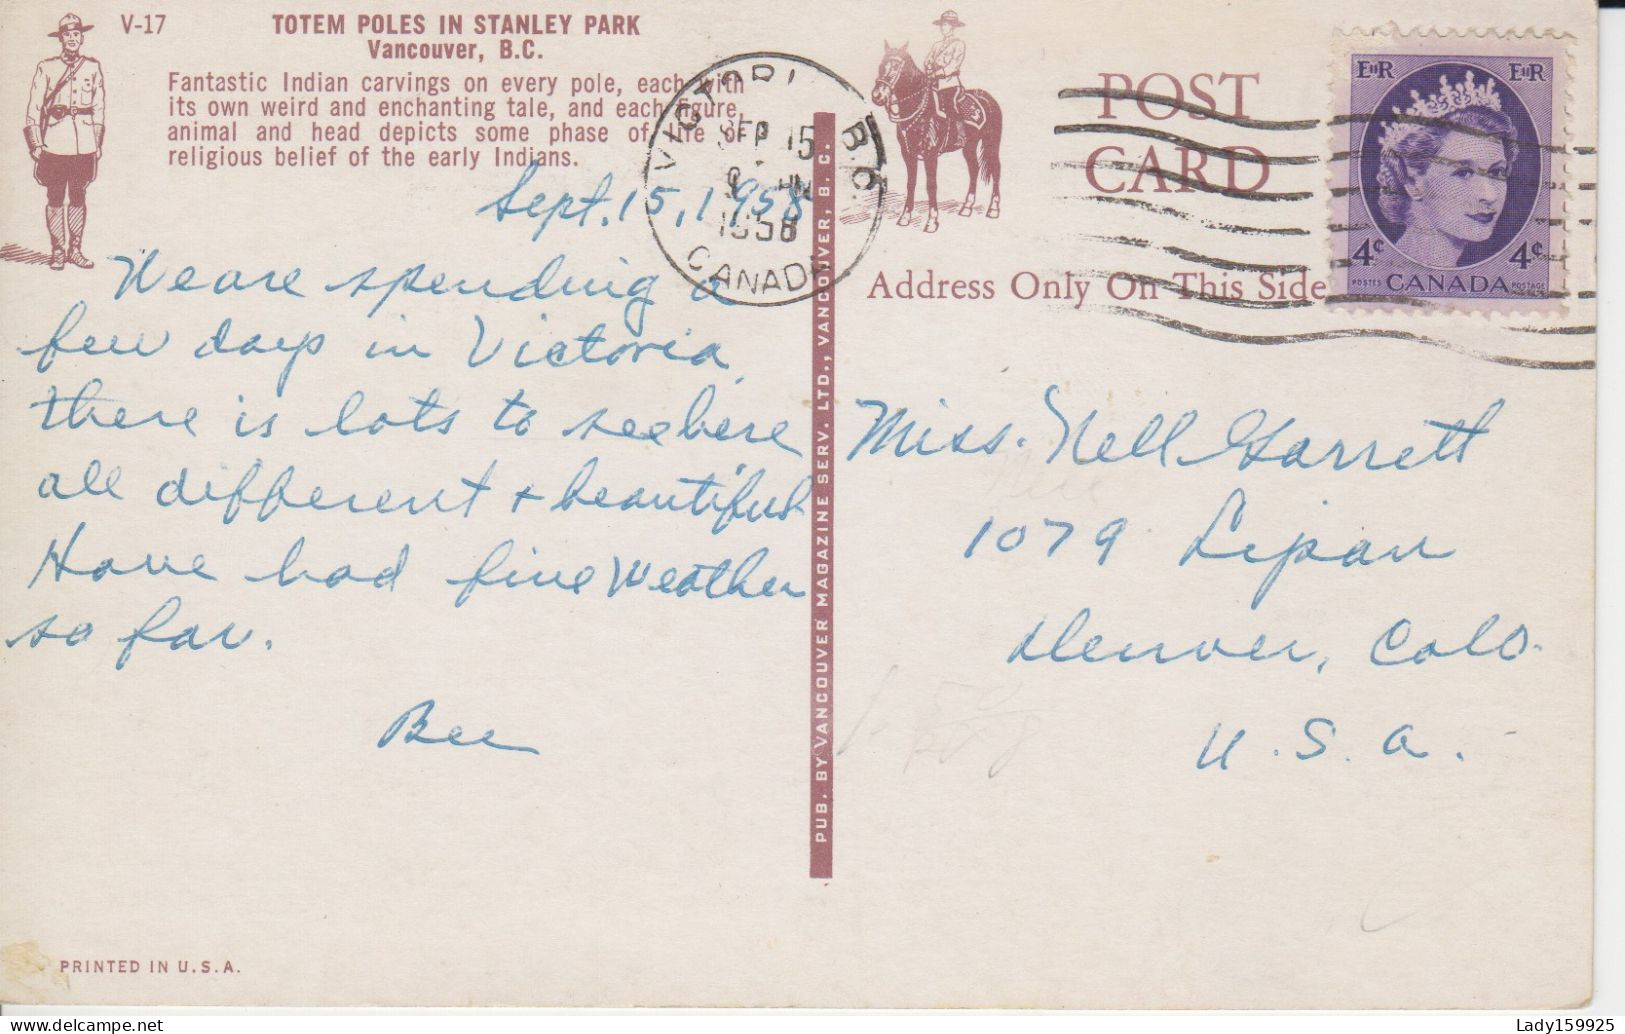 V-17
TOTEM POLES IN STANLEY PARK
Vancouver, B.C.
Fantastic Indian carvings on every pole, each with
its own weird and enchanting tale, and each figure,
animal and head depicts some phase of life or
religious belief of the early Indians.
Sept. 15, 1958
We are spending a
few days in Victoria
there is lots to see here
all different + beautiful
Have had fine weather
so far.
Bee
PRINTED IN U.S.A.
VICTORIA B.C.
SEP 15
1958
CANADA
PUB. BY VANCOUVER MAGAZINE SERV. LTD., VANCOUVER, B.C.
POST
CARD
Address Only On This Side
EIIR EIIR
4¢ 4¢
POSTES CANADA POSTAGE
Miss. Nell Garrett
1079 Lipan
Denver, Colo.
U.S.A.
Lady159925